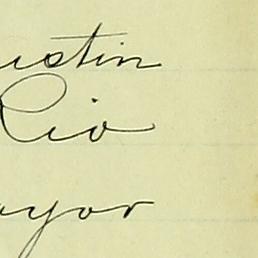 ustin
Rio
ayor